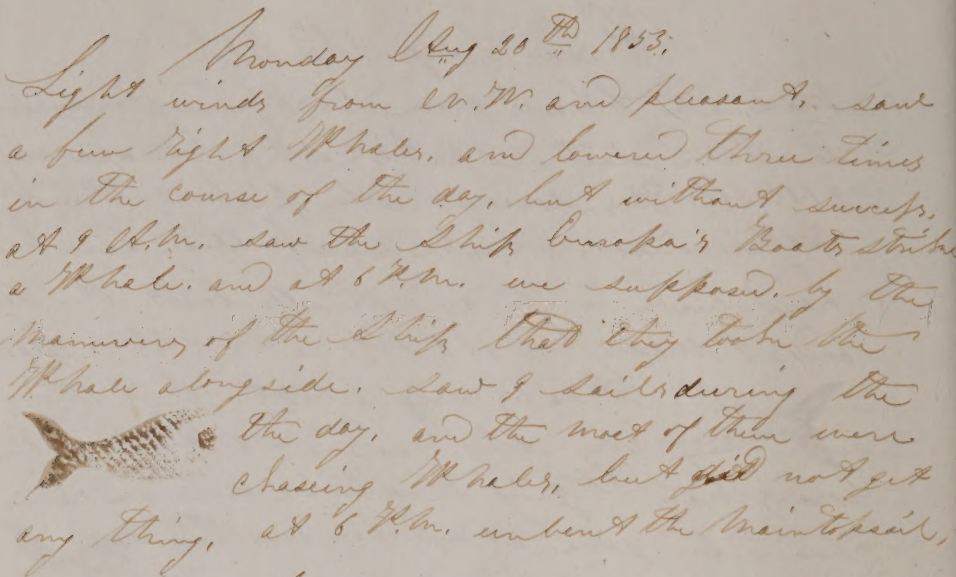 Monday Aug 20th 1853.
Light winds from N.W. and pleasant. saw
a few right Whales, and lowered three times
in the course of the day, but without success.
at 9 A.M. saw the Ship Europa's Boats strike
a Whale. and at 6 P.M. we supposed. by the
manuvers of the Ship that they took the
Whale alongside. saw 9 sails during the
the day, and the most of them were
chaseing Whales, but did not get
any thing. at 6 P.M. unbent the Maintopsail.